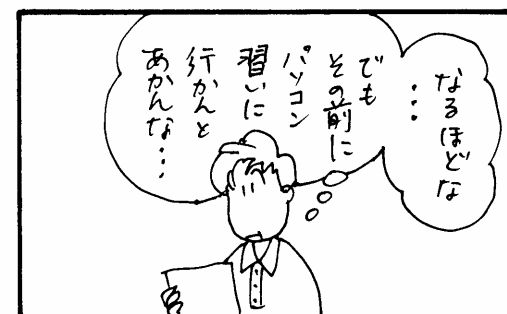 なるほどな
・・・
でも
その前に
パソコン
習いに
行かんと
あかんな・・・